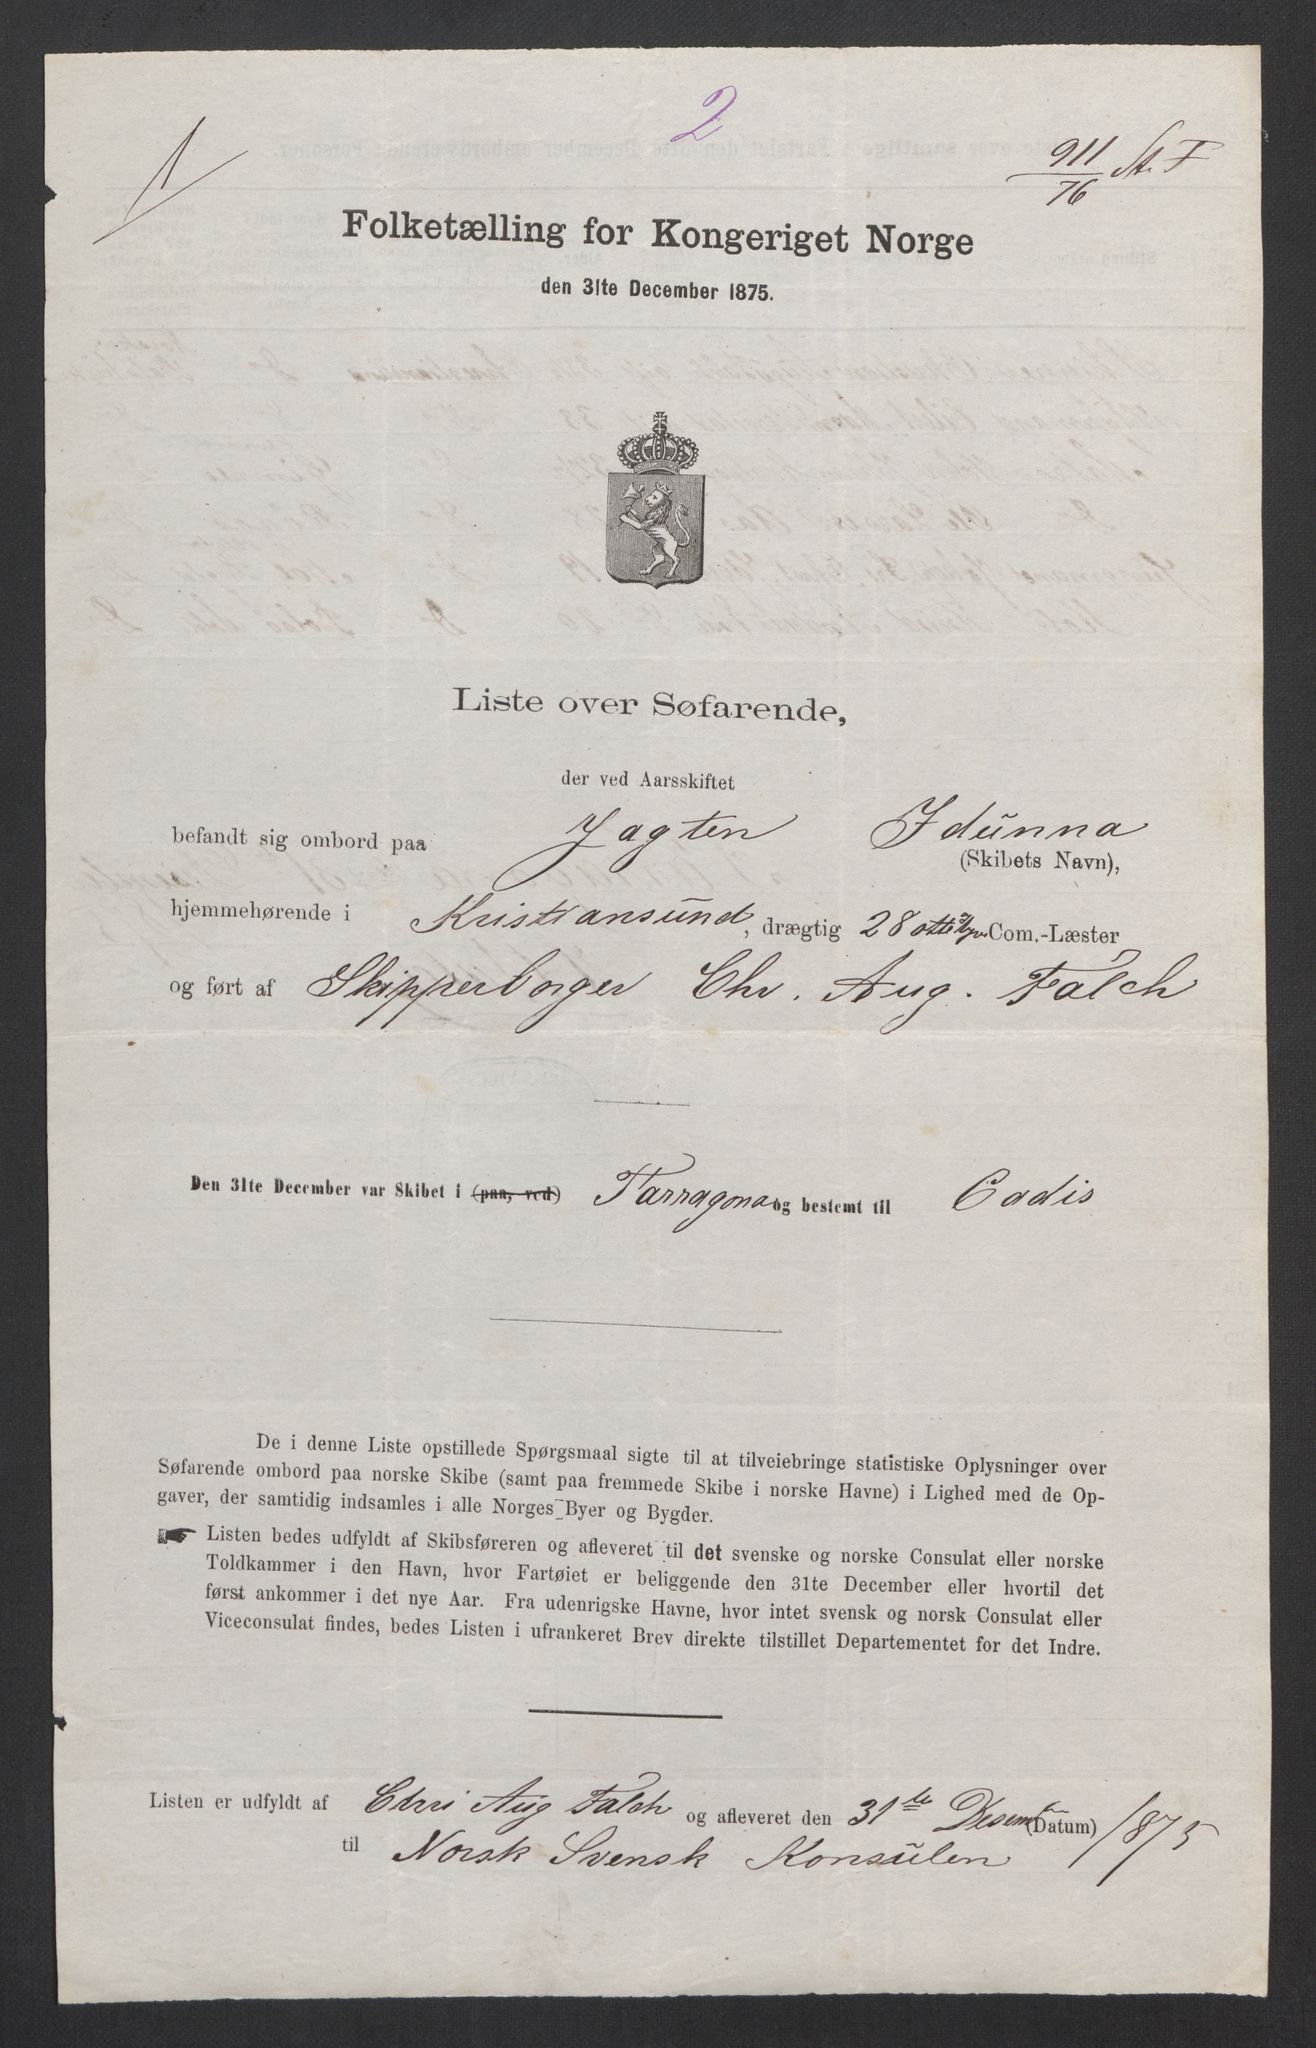 2
1
911
76 St. F
Folketælling for Kongeriget Norge
den 31te December 1875.
Liste over Søfarende,
der ved Aarsskiftet
befandt sig ombord paa Jagten Idunna
(Skibets Navn),
hjemmehørende i Kristiansund, drægtig 28 otte Com.-Læster
og ført af Skipperborger Chr. Aug. Falch
Den 31te December var Skibet i (paa, ved) Tarragona og bestemt til Cadis
De i denne Liste opstillede Spørgsmaal sigte til at tilveiebringe statistiske Oplysninger over
Søfarende ombord paa norske Skibe (samt paa fremmede Skibe i norske Havne) i Lighed med de Op-
gaver, der samtidig indsamles i alle Norges Byer og Bygder.
☛ Listen bedes udfyldt af Skibsføreren og afleveret til det svenske og norske Consulat eller norske
Toldkammer i den Havn, hvor Fartøiet er beliggende den 31te December eller hvortil det
først ankommer i det nye Aar. Fra udenrigske Havne, hvor intet svensk og norsk Consulat eller
Viceconsulat findes, bedes Listen i ufrankeret Brev direkte tilstillet Departementet for det Indre.
Listen er udfyldt af Chri Aug Falch og afleveret den 31te Desem (Datum) 1875
til Norsk Svensk Konsulen